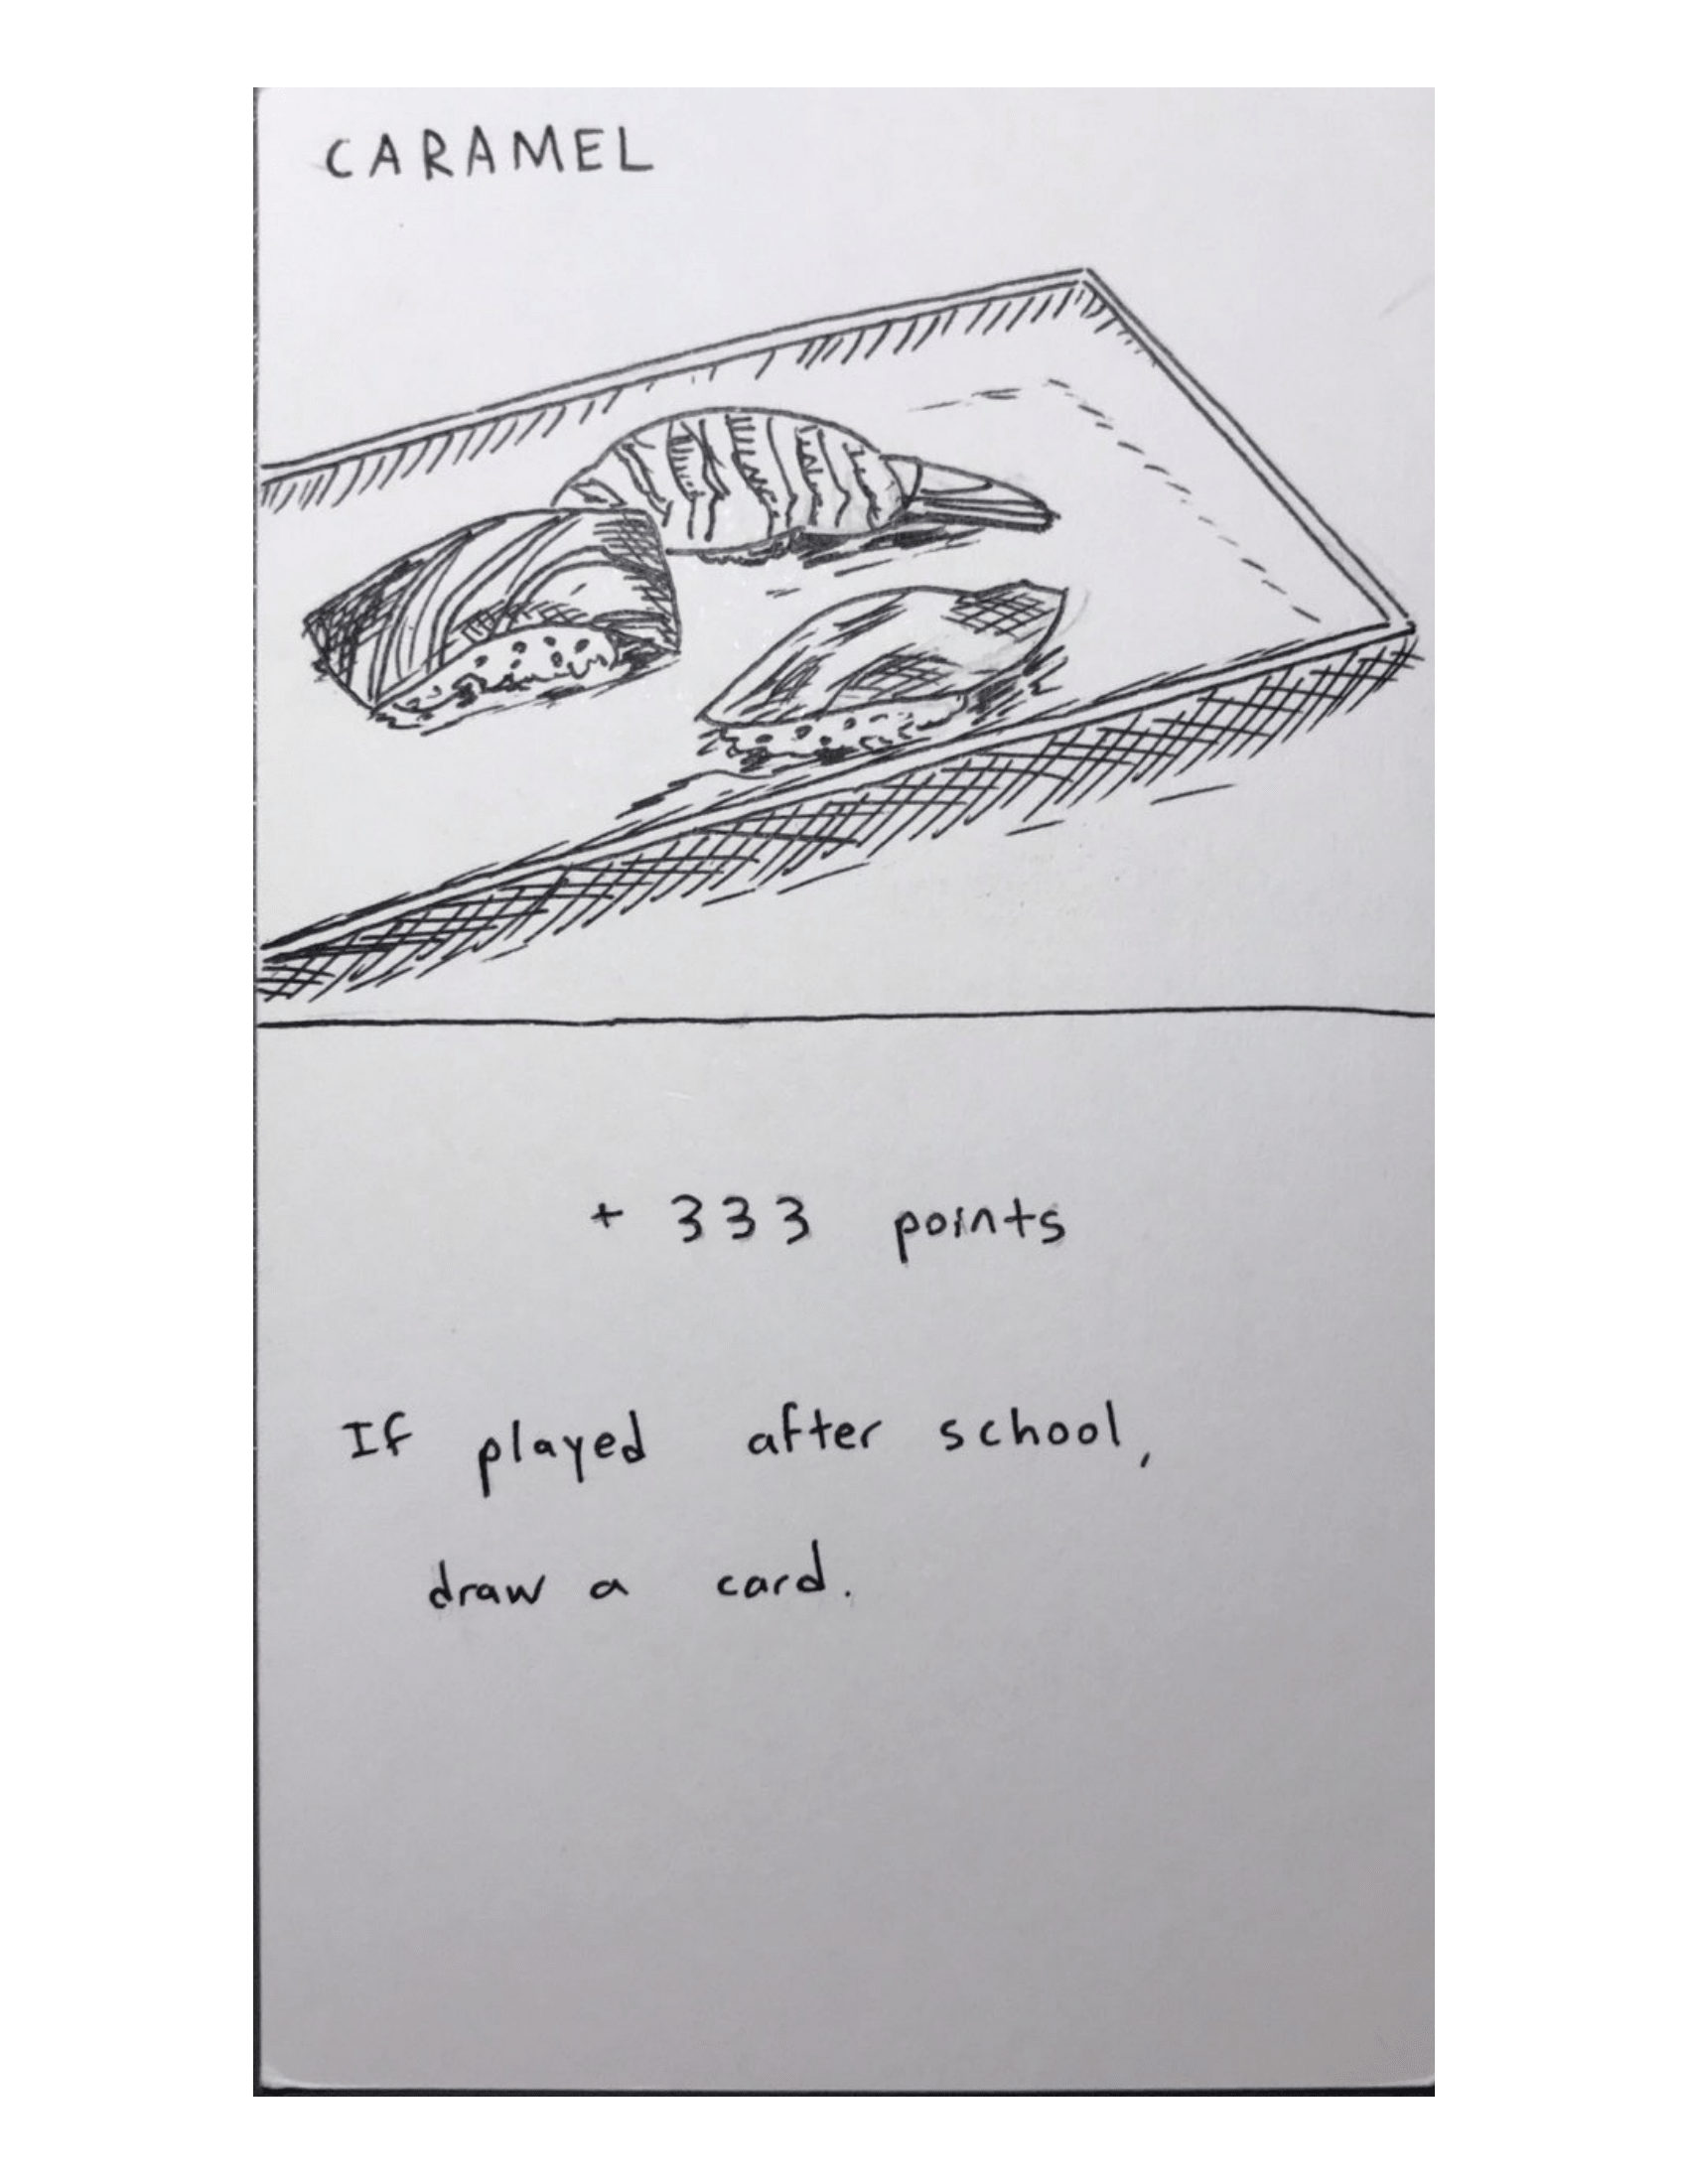 CARAMEL
+ 333 points
If played after school,
draw a card.